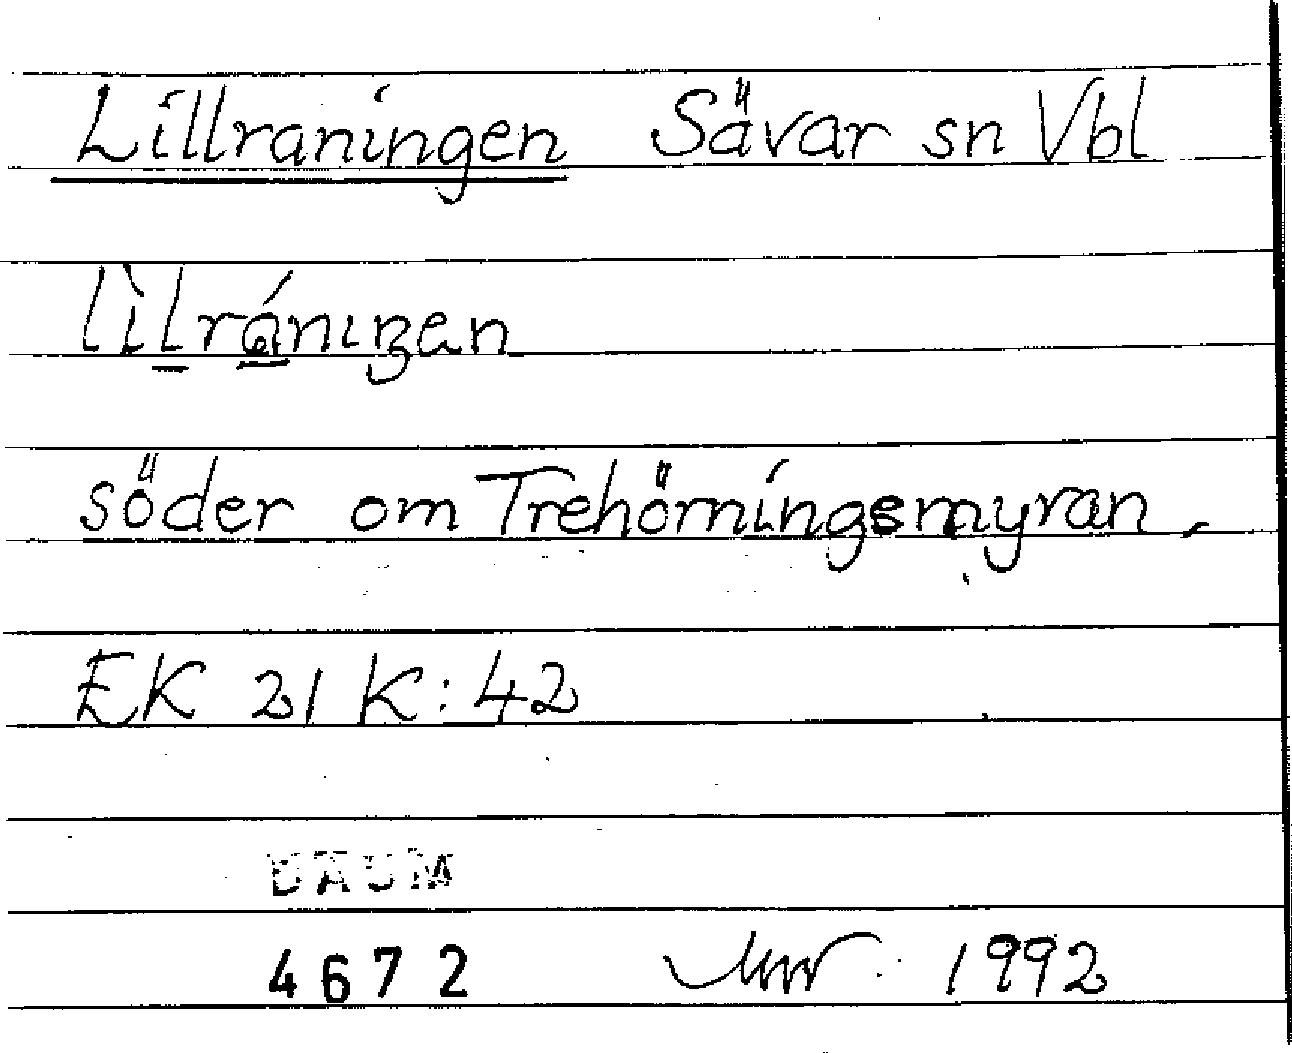 Lillraningen Sävar sn Vbl
lìlránıŋen
söder om Trehörningsmyran.
EK 21 K:42
DAUM
4672 1992